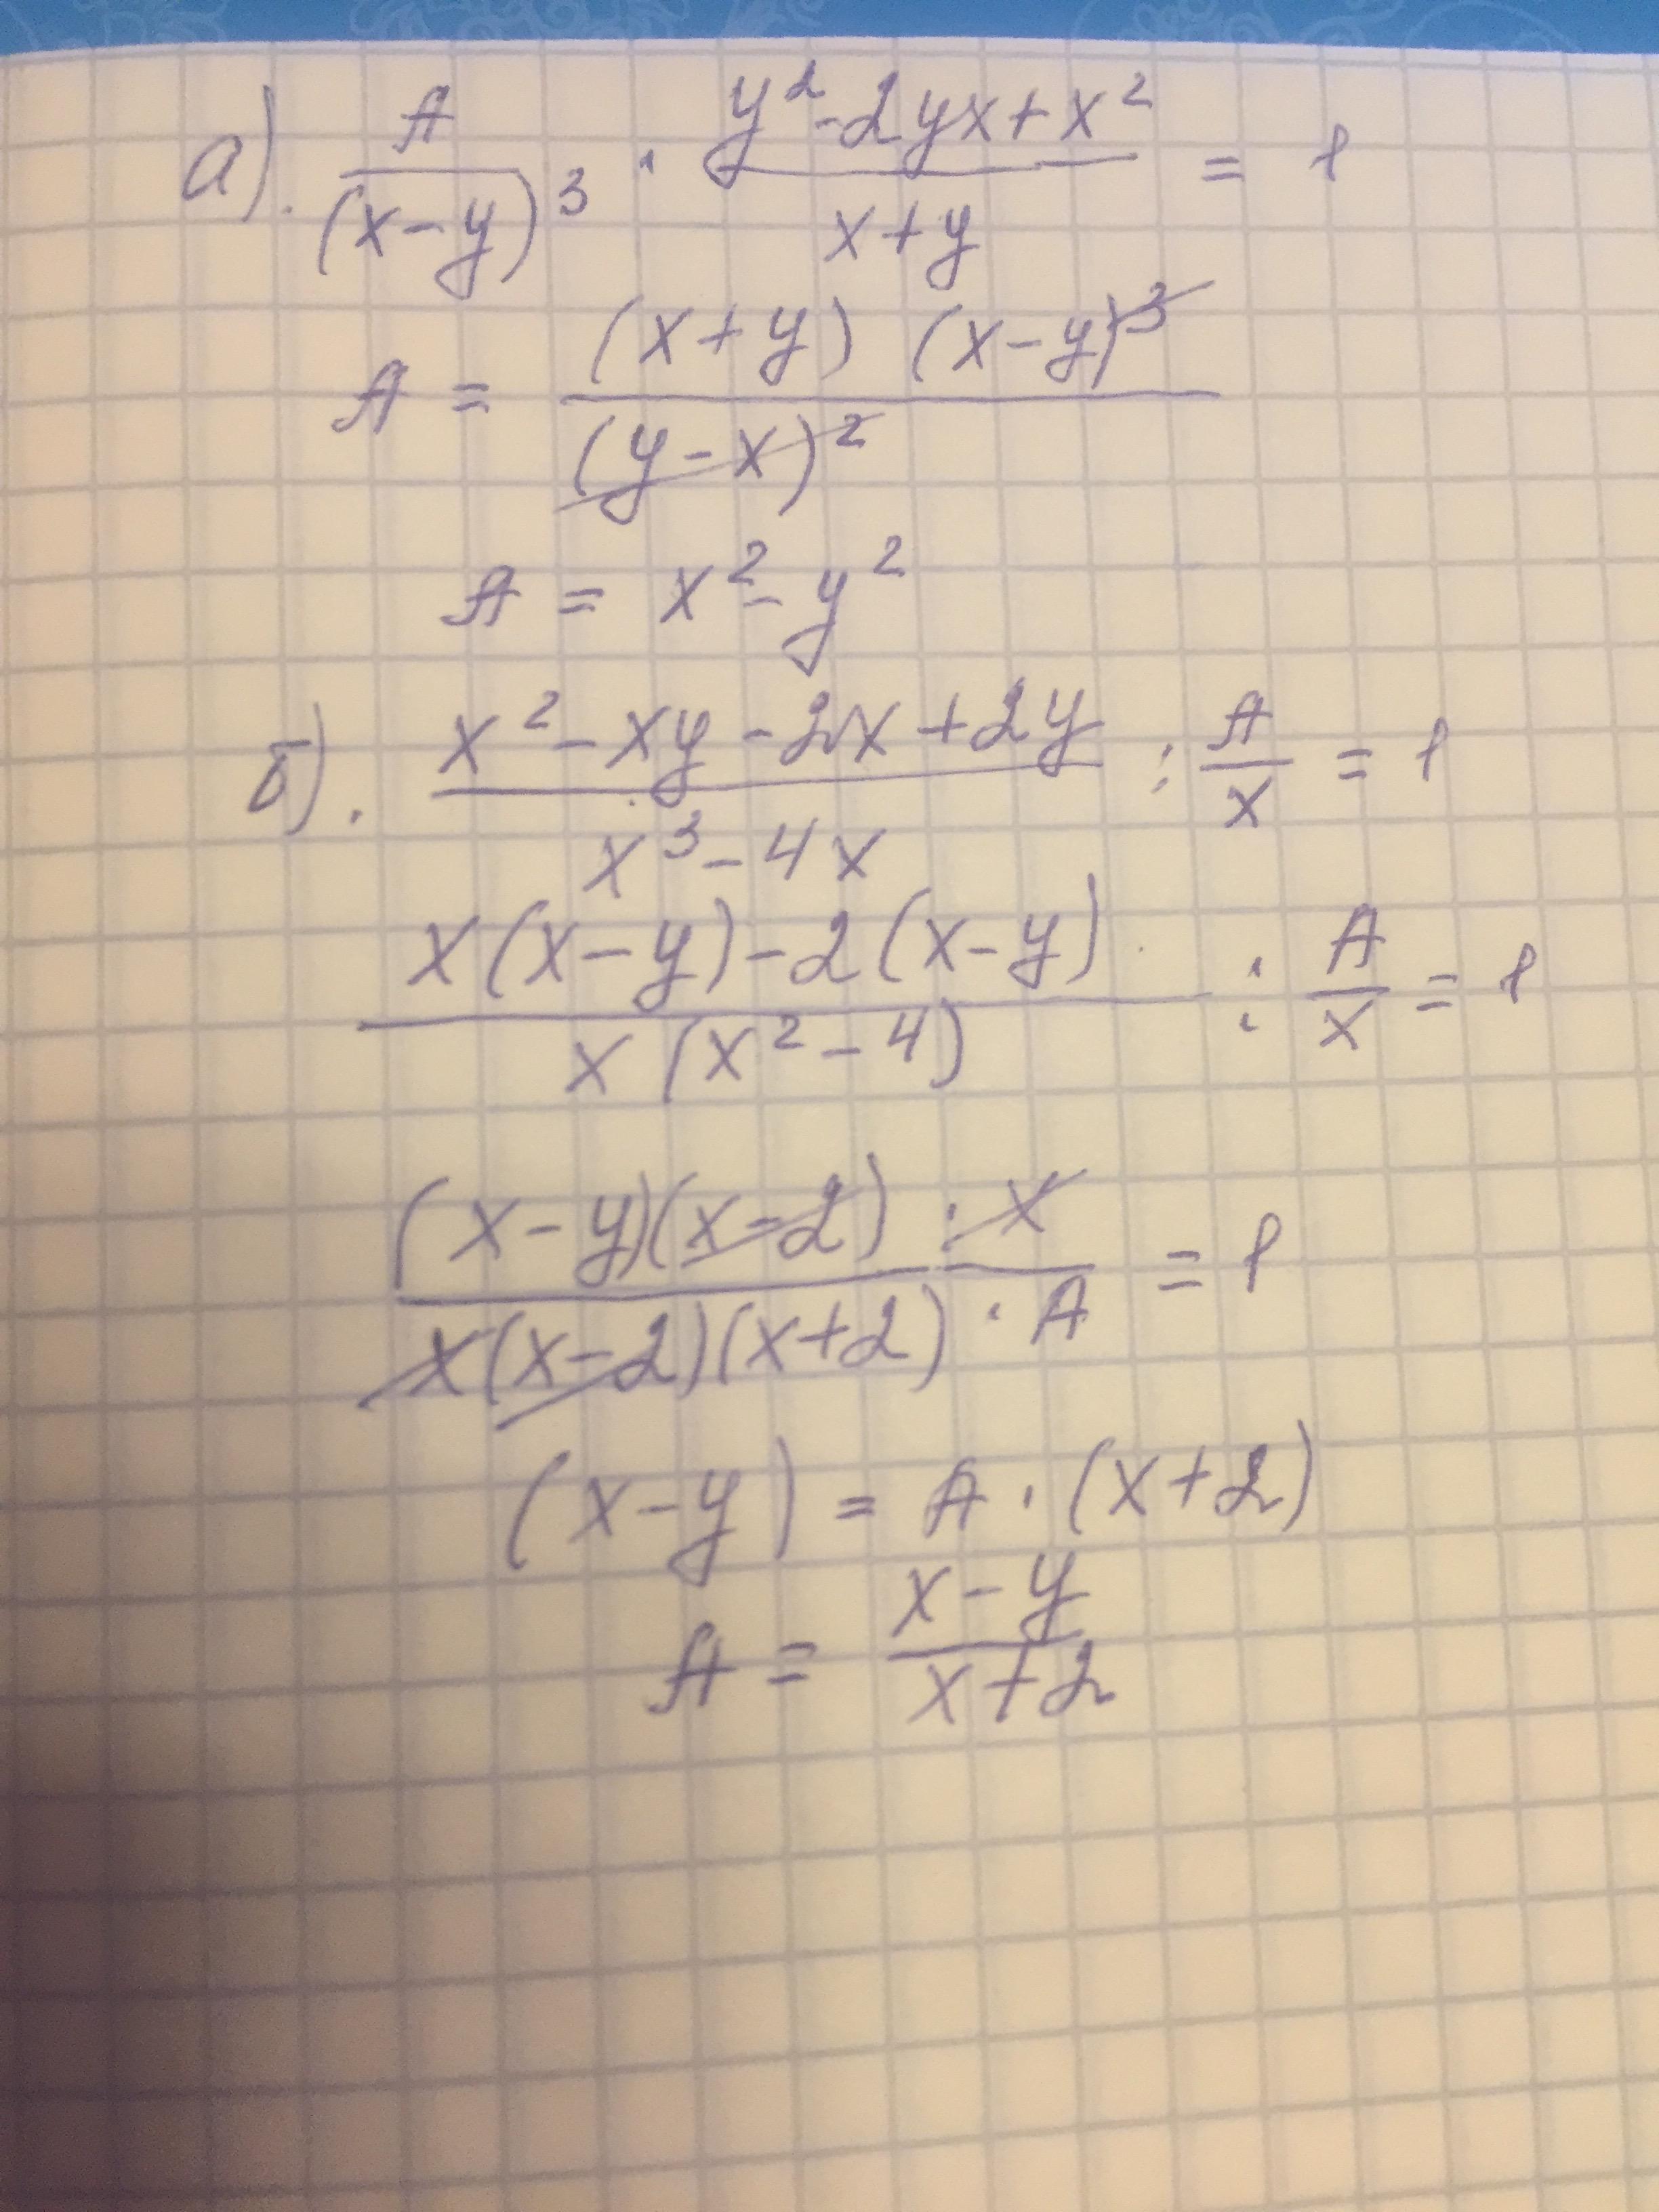 а). A/(x-y)³ · (y²-2yx+x²)/(x+y) = 1
A = (x+y)(x-y)³/(y-x)²
A = x²-y²
б). (x²-xy-2x+2y)/(x³-4x) : A/x = 1
(x(x-y)-2(x-y))/(x(x²-4)) : A/x = 1
((x-y)(x-2)·x)/(x(x-2)(x+2)·A) = 1
(x-y) = A·(x+2)
A = (x-y)/(x+2)